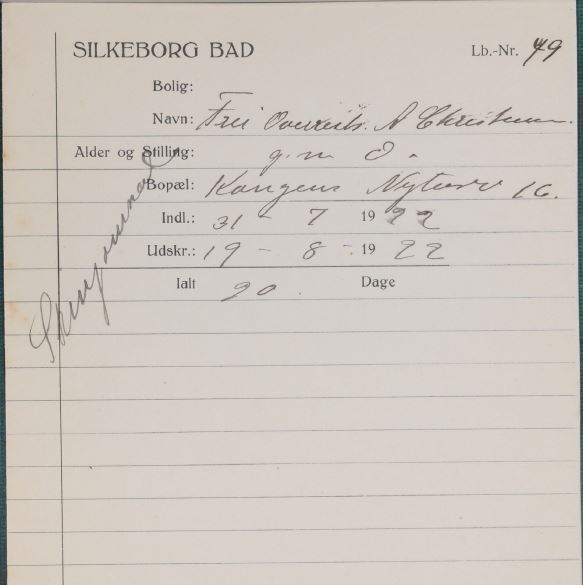 SILKEBORG BAD
Lb.-Nr. 49
Bolig:
Navn: A Christensen.
Alder og Stilling: g.m. d.
Bopæl: Kongens Nytorv 16.
Indl.: 31 - 7 1922
Udskr.: 19 - 8 - 1922
Ialt 20. Dage